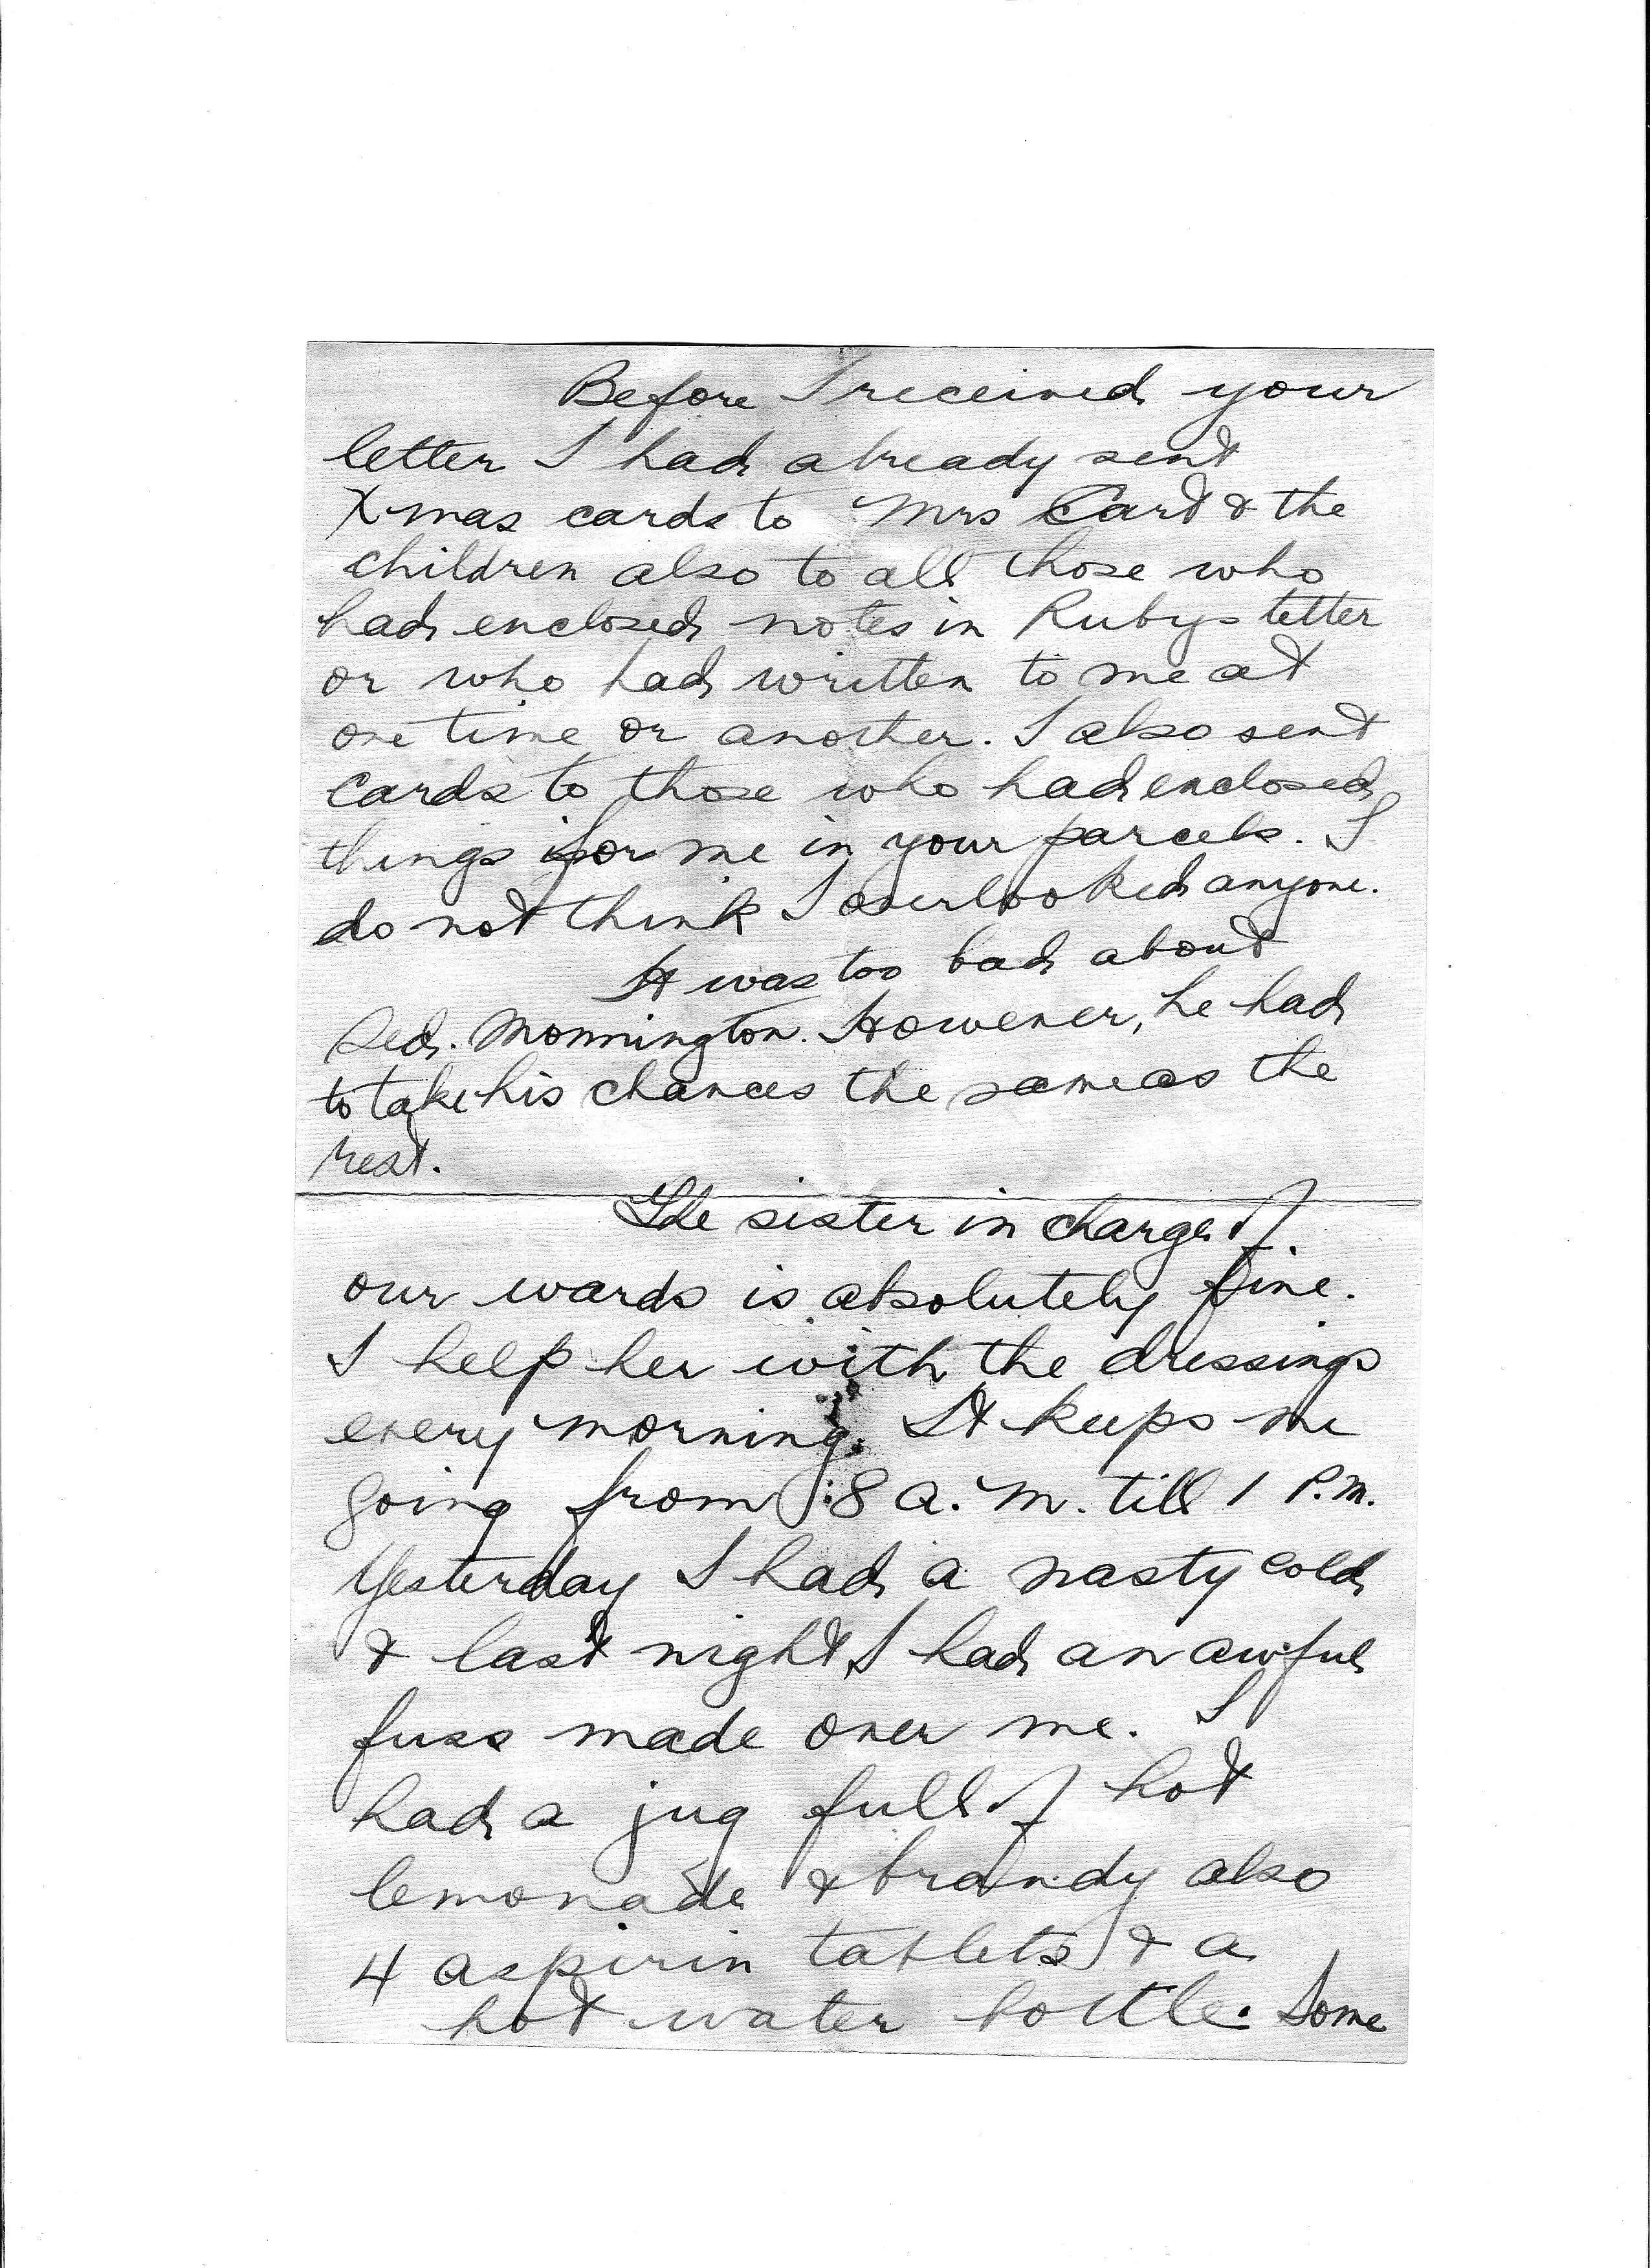 Before I received your
letter I had already sent
Xmas cards to Mrs Card & the
children also to all those who
had enclosed notes in Rubys letter
or who had written to me at
one time or another. I also sent
cards to those who had enclosed
things for me in your parcels. I
do not think I overlooked anyone.
It was too bad about
Monnington. However, he had
to take his chances the same as the
rest.
The sister in charge of
our wards is absolutely fine.
I help her with the dressings
every morning. It keeps me
going from 8 a.m. till 1 P.M.
Yesterday I had a nasty cold
& last night I had an awful
fuss made over me. I
had a jug full of hot
lemonade & brandy also
4 aspirin tablets & a
hot water bottle. Some